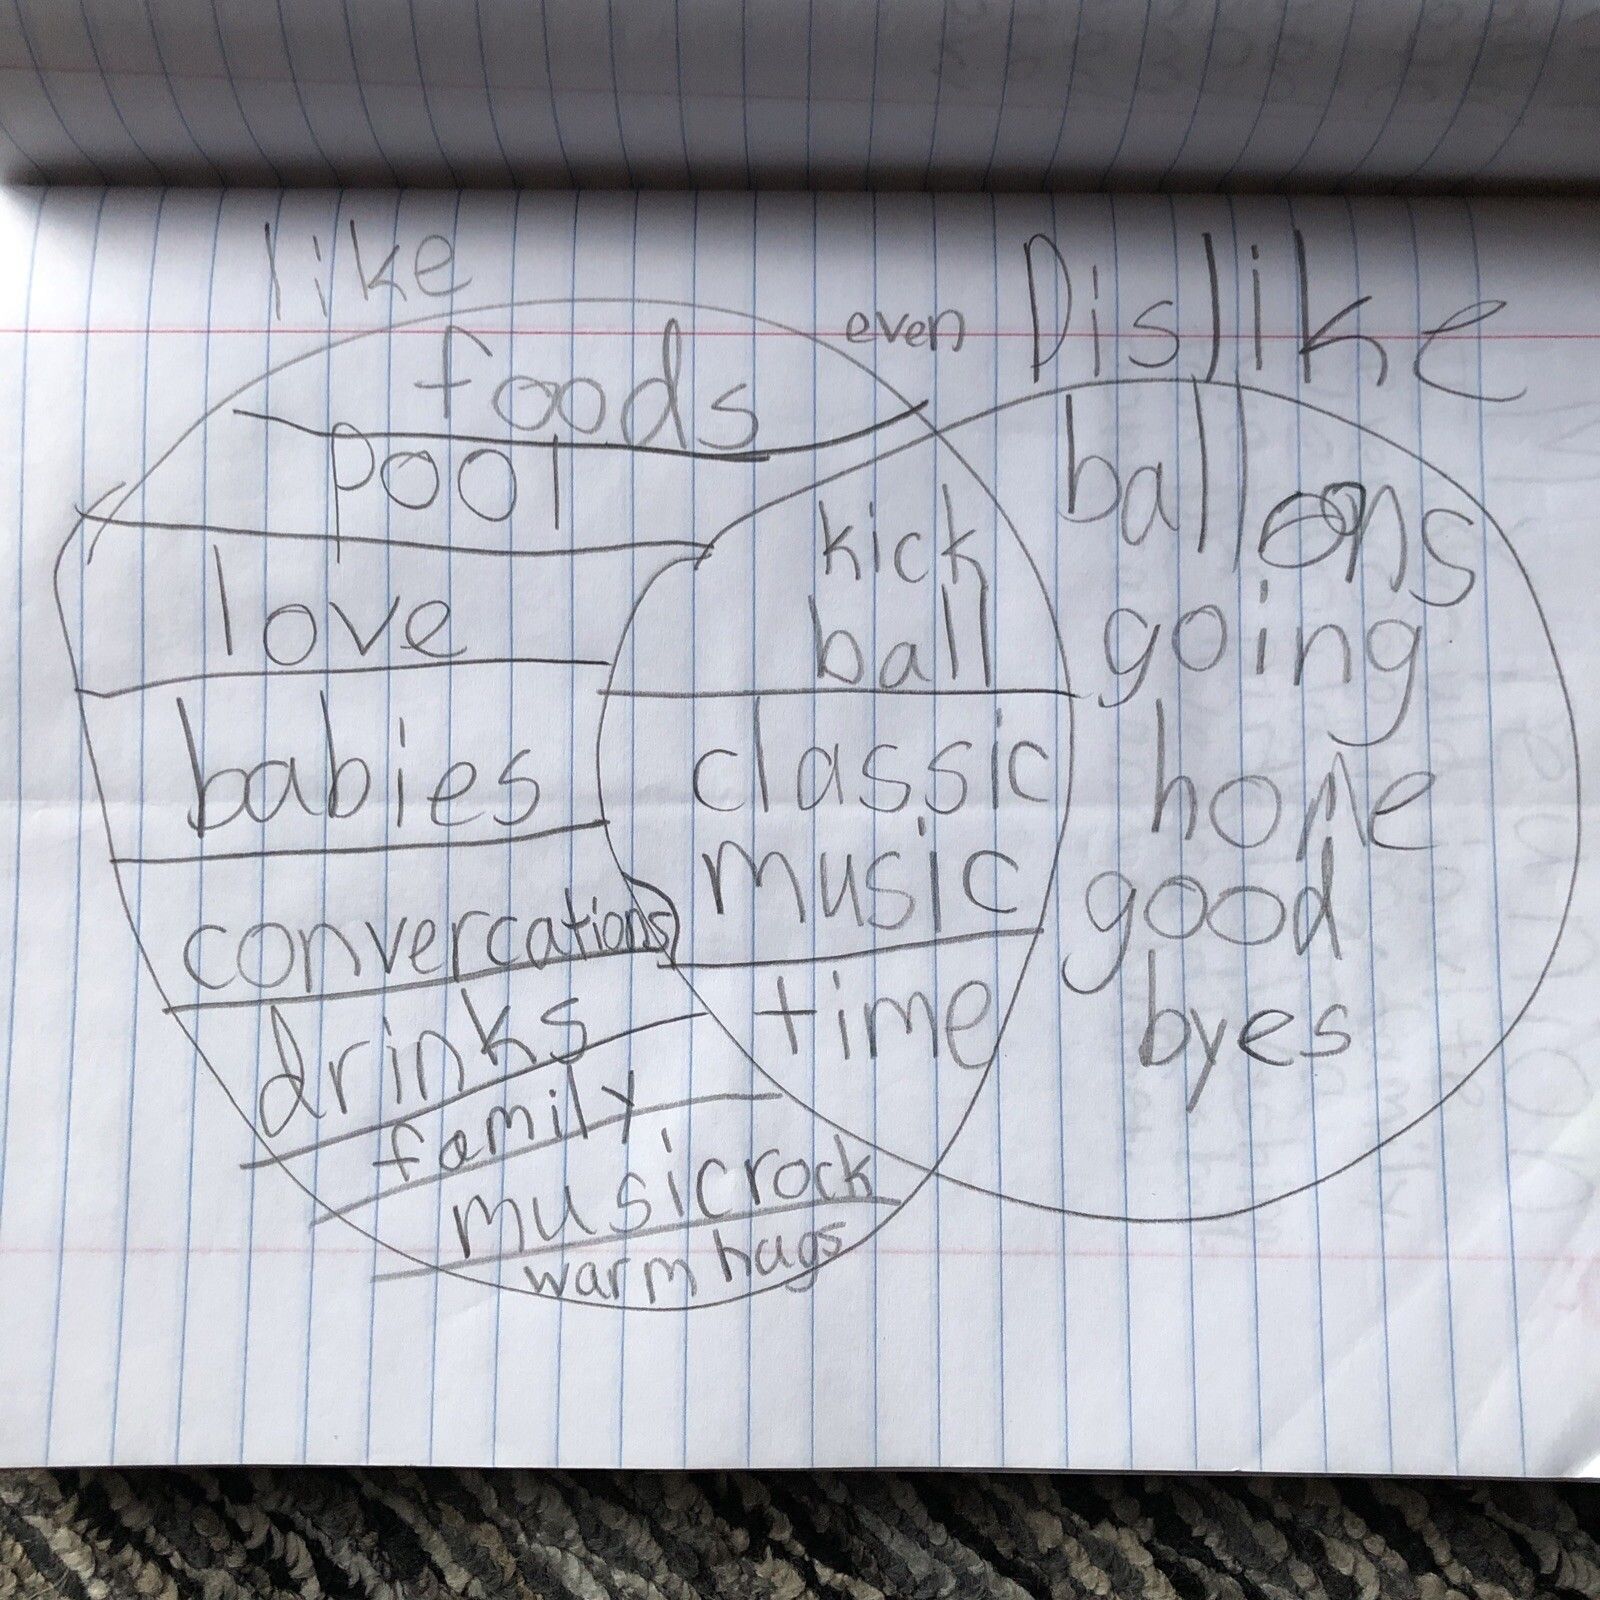 like
even
Dislike
foods
pool
love
babies
convercations
drinks
family
music rock
warm hugs
kick
ball
classic
music
time
ballons
going
home
good
byes